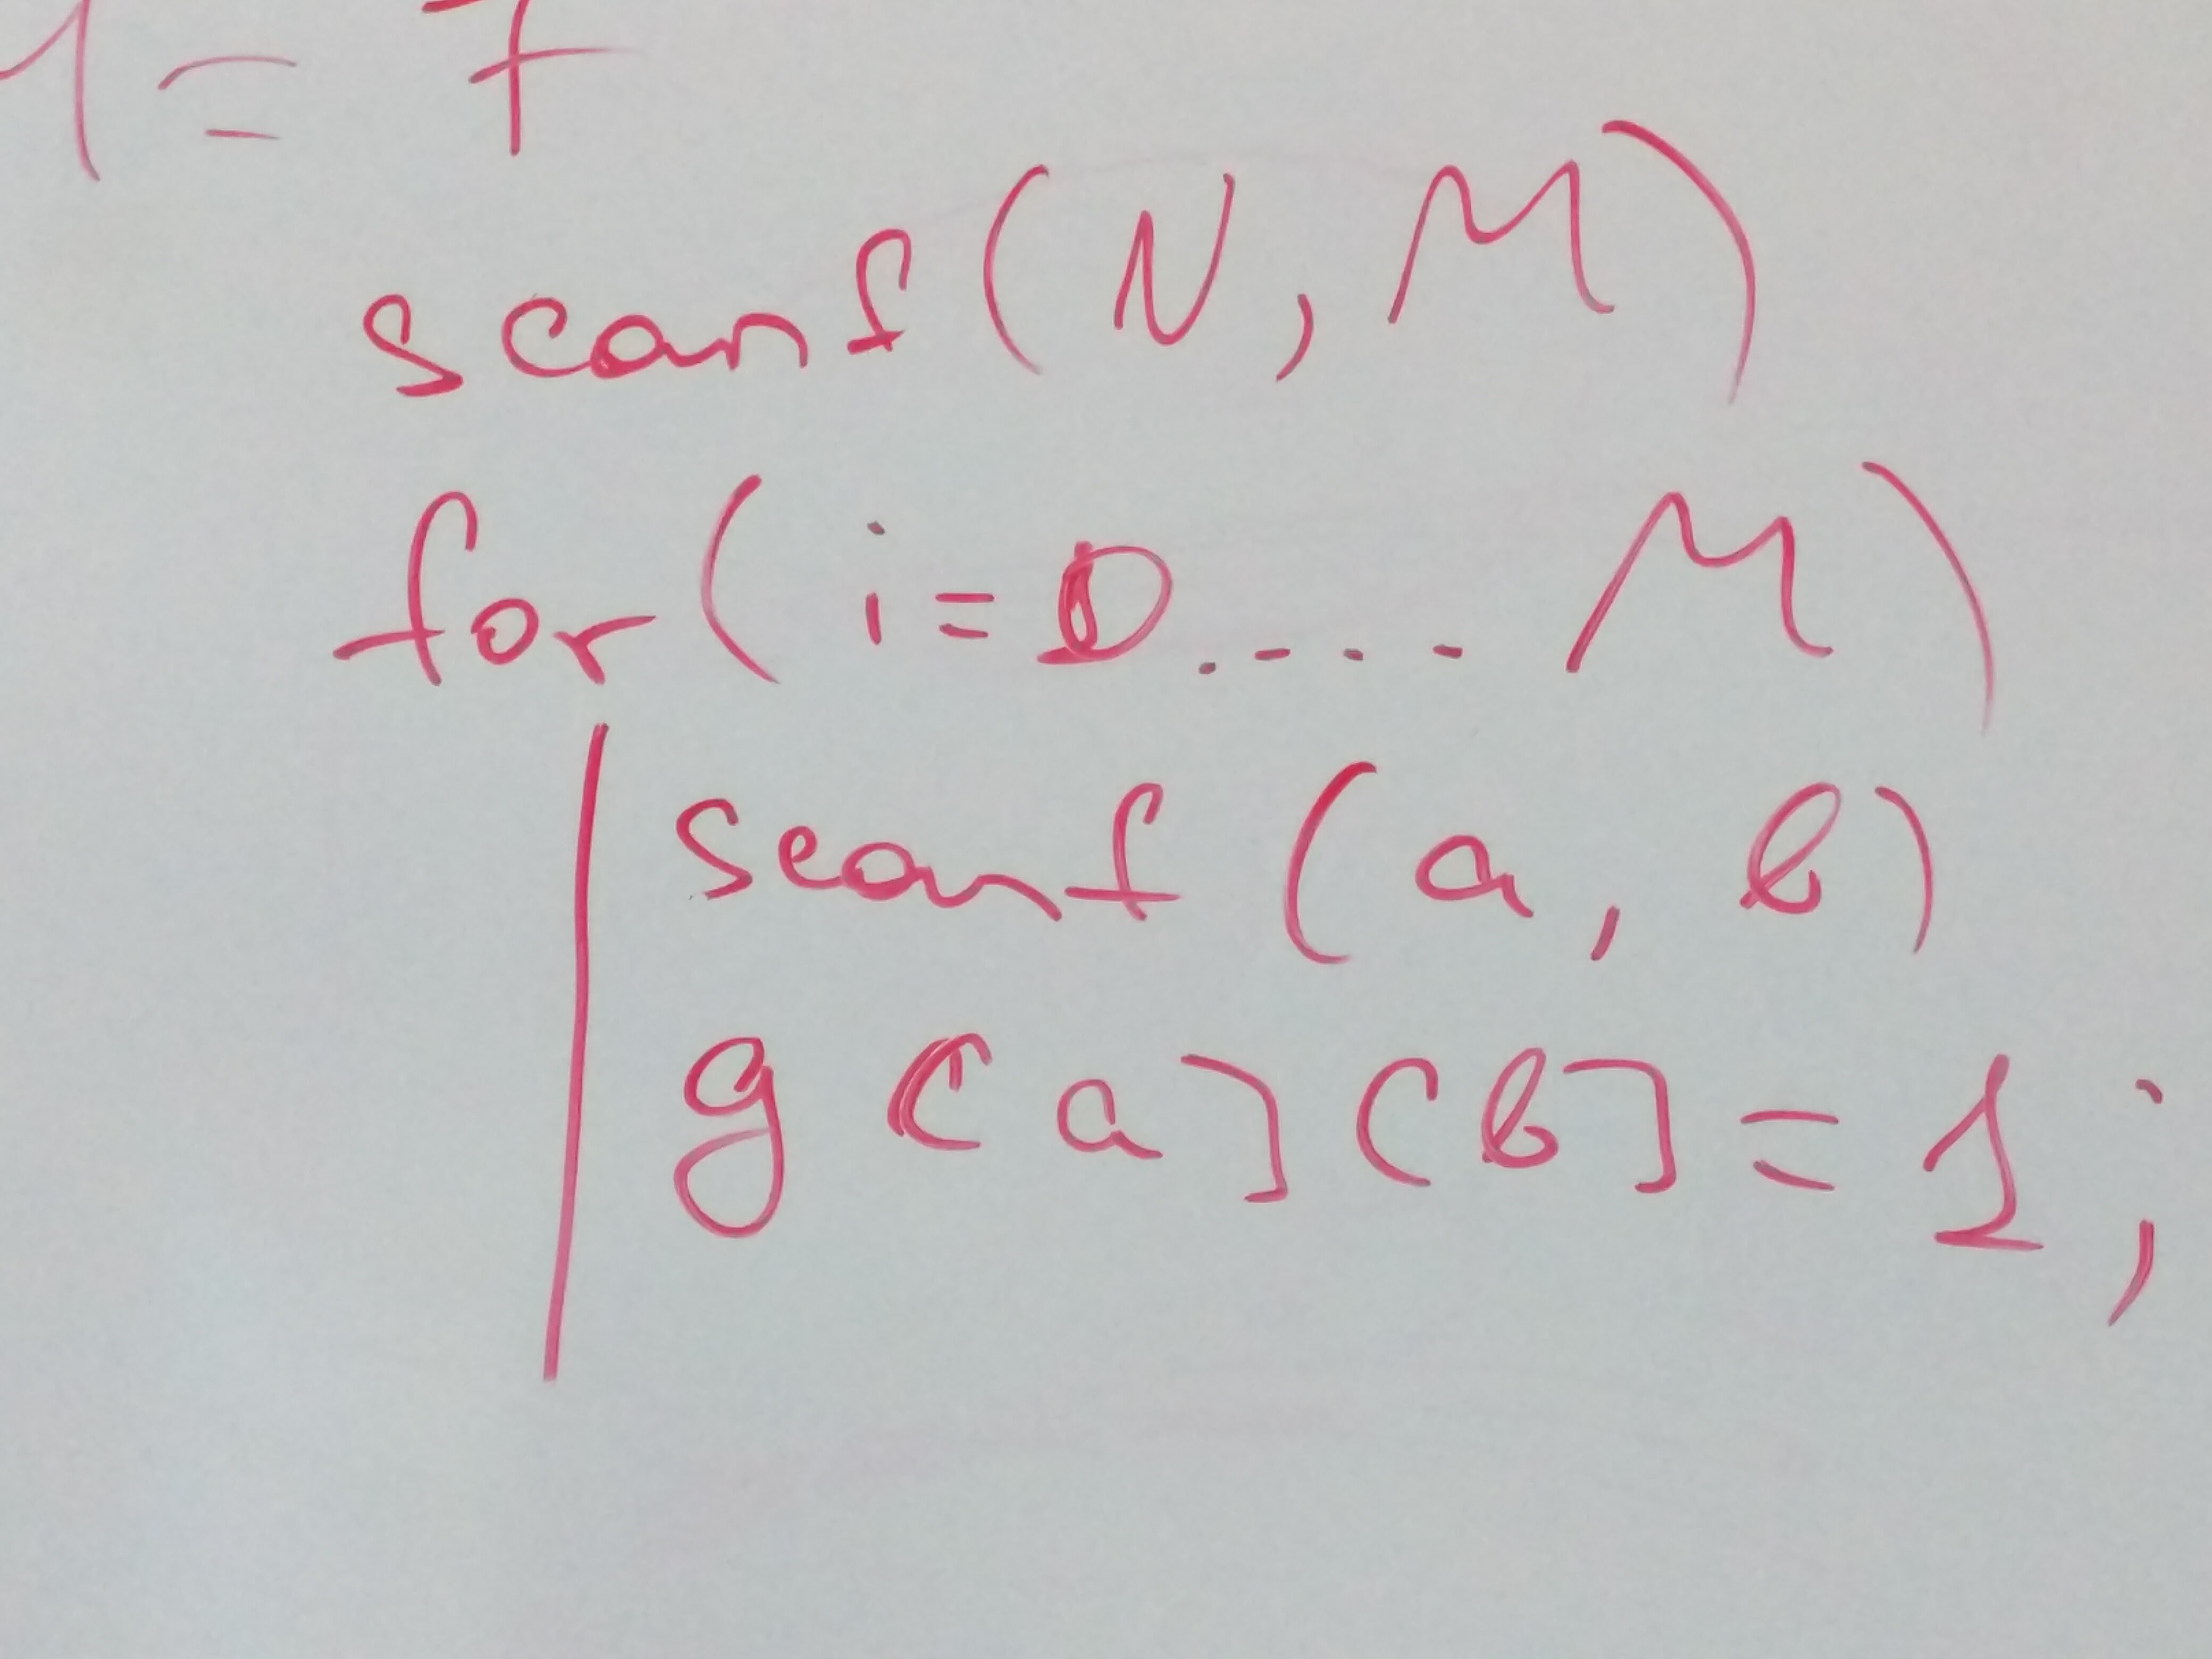 = 7
scanf(N, M)
for( i=0.... M)
scanf (a, b)
g[a][b]=1;